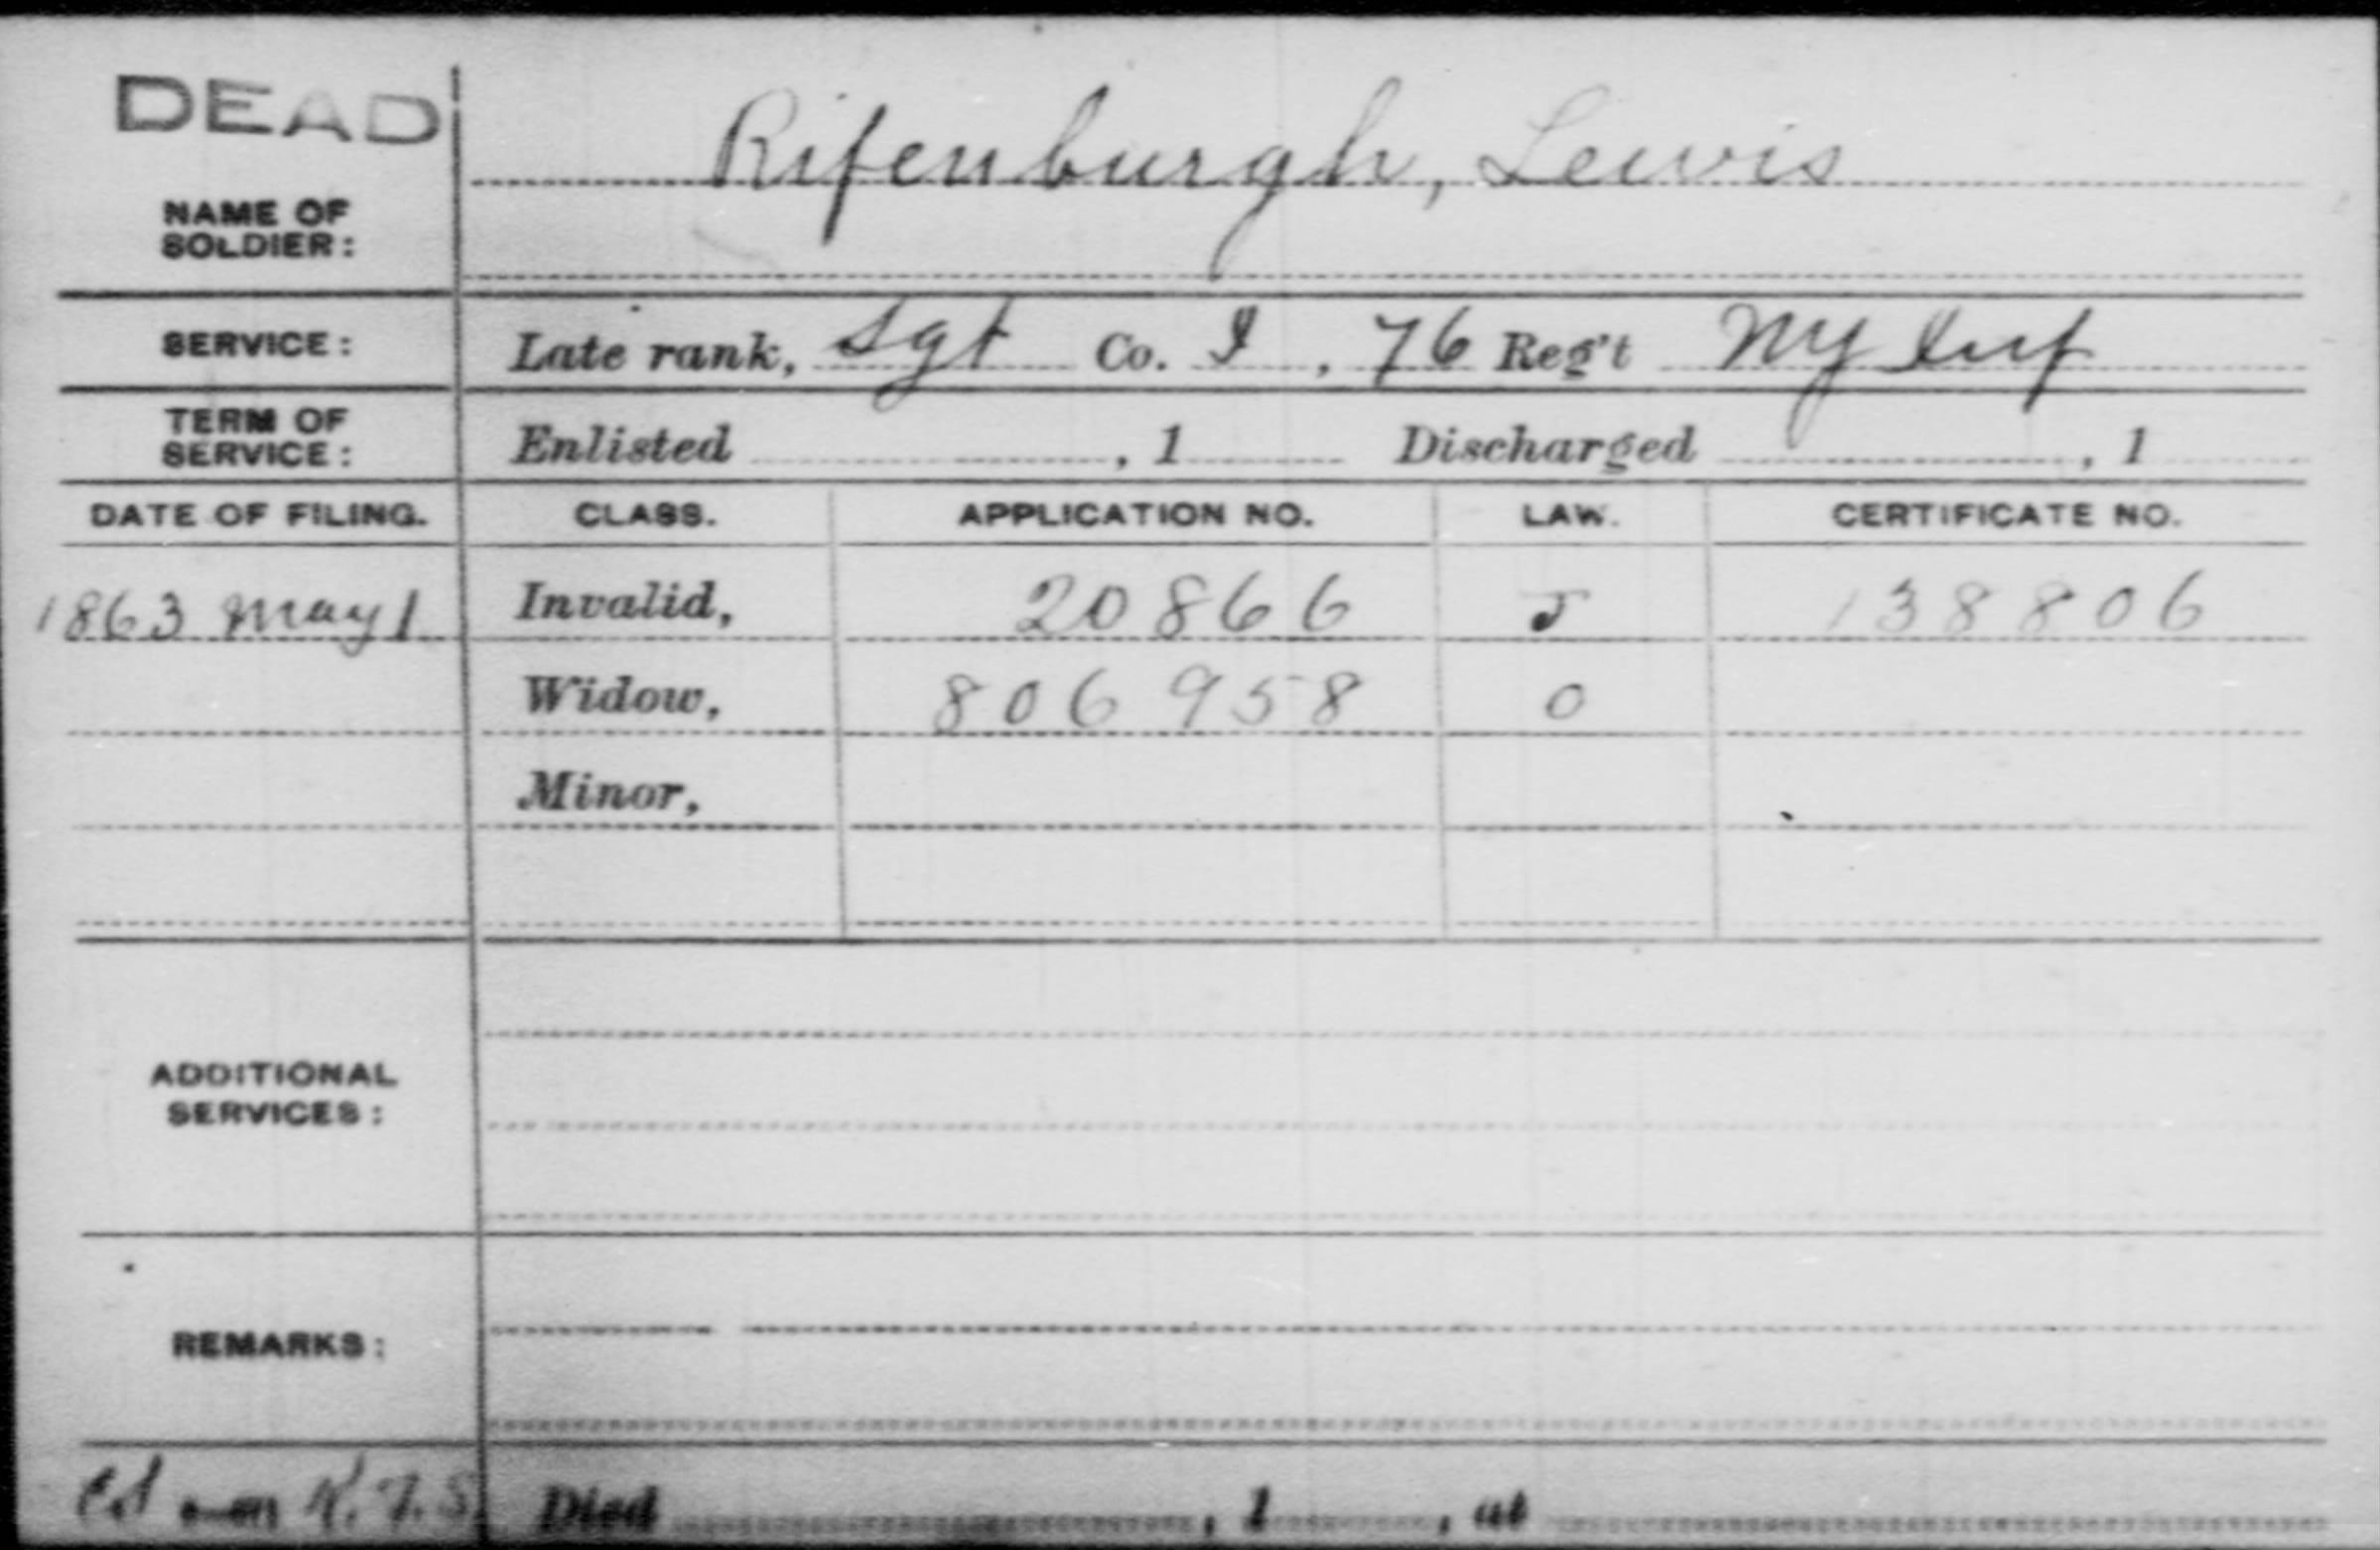 DEAD
Rifenburgh, Lewis
NAME OF
SOLDIER:
SERVICE: Late rank, Sgt Co. I, 76 Reg't NY Inf
TERM OF
SERVICE: Enlisted , 1 Discharged , 1
DATE OF FILING. CLASS. APPLICATION NO. LAW. CERTIFICATE NO.
1863 May 1 Invalid, 20866 J 138806
Widow, 806958 O
Minor,
ADDITIONAL
SERVICES:
REMARKS:
Died , 1 , at